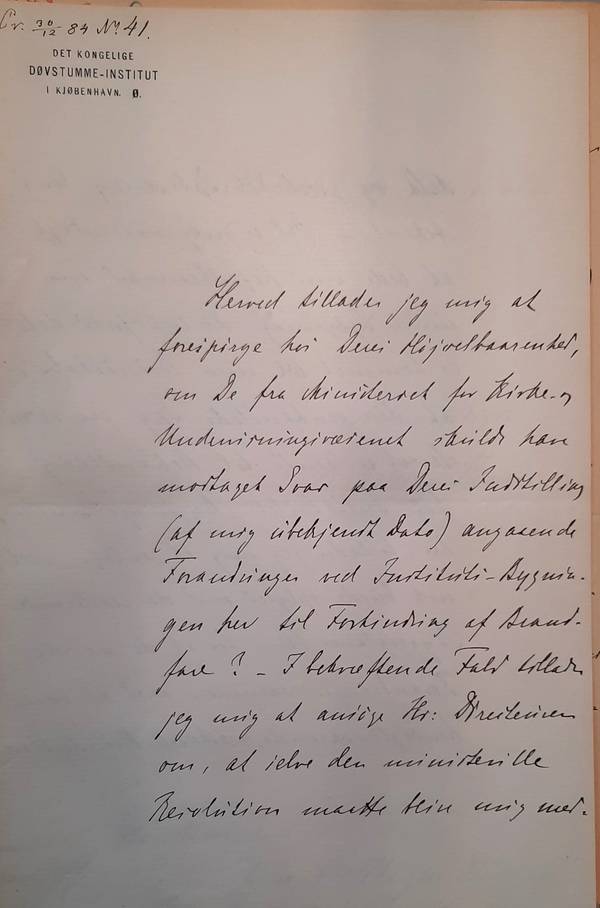 Pr. 30/12 84 No 41.
DET KONGELIGE
DØVSTUMME-INSTITUT
I KJØBENHAVN. Ø.
Herved tillader jeg mig at
forespørge hos Deres Højvelbaarenhed,
om De fra Ministeriet for Kirke- og
Undervisningsvæsenet skulde have
modtaget Svar paa Deres Indstilling
(af mig ubekjendt Dato) angaaende
Forandringer ved Instituts-Bygnin-
gen her til Forhindring af Brand-
fare? - I bekræftende Fald tillader
jeg mig at ansøge Hr: Directeuren
om, at selve den ministerielle
Resolution maatte blive mig med-